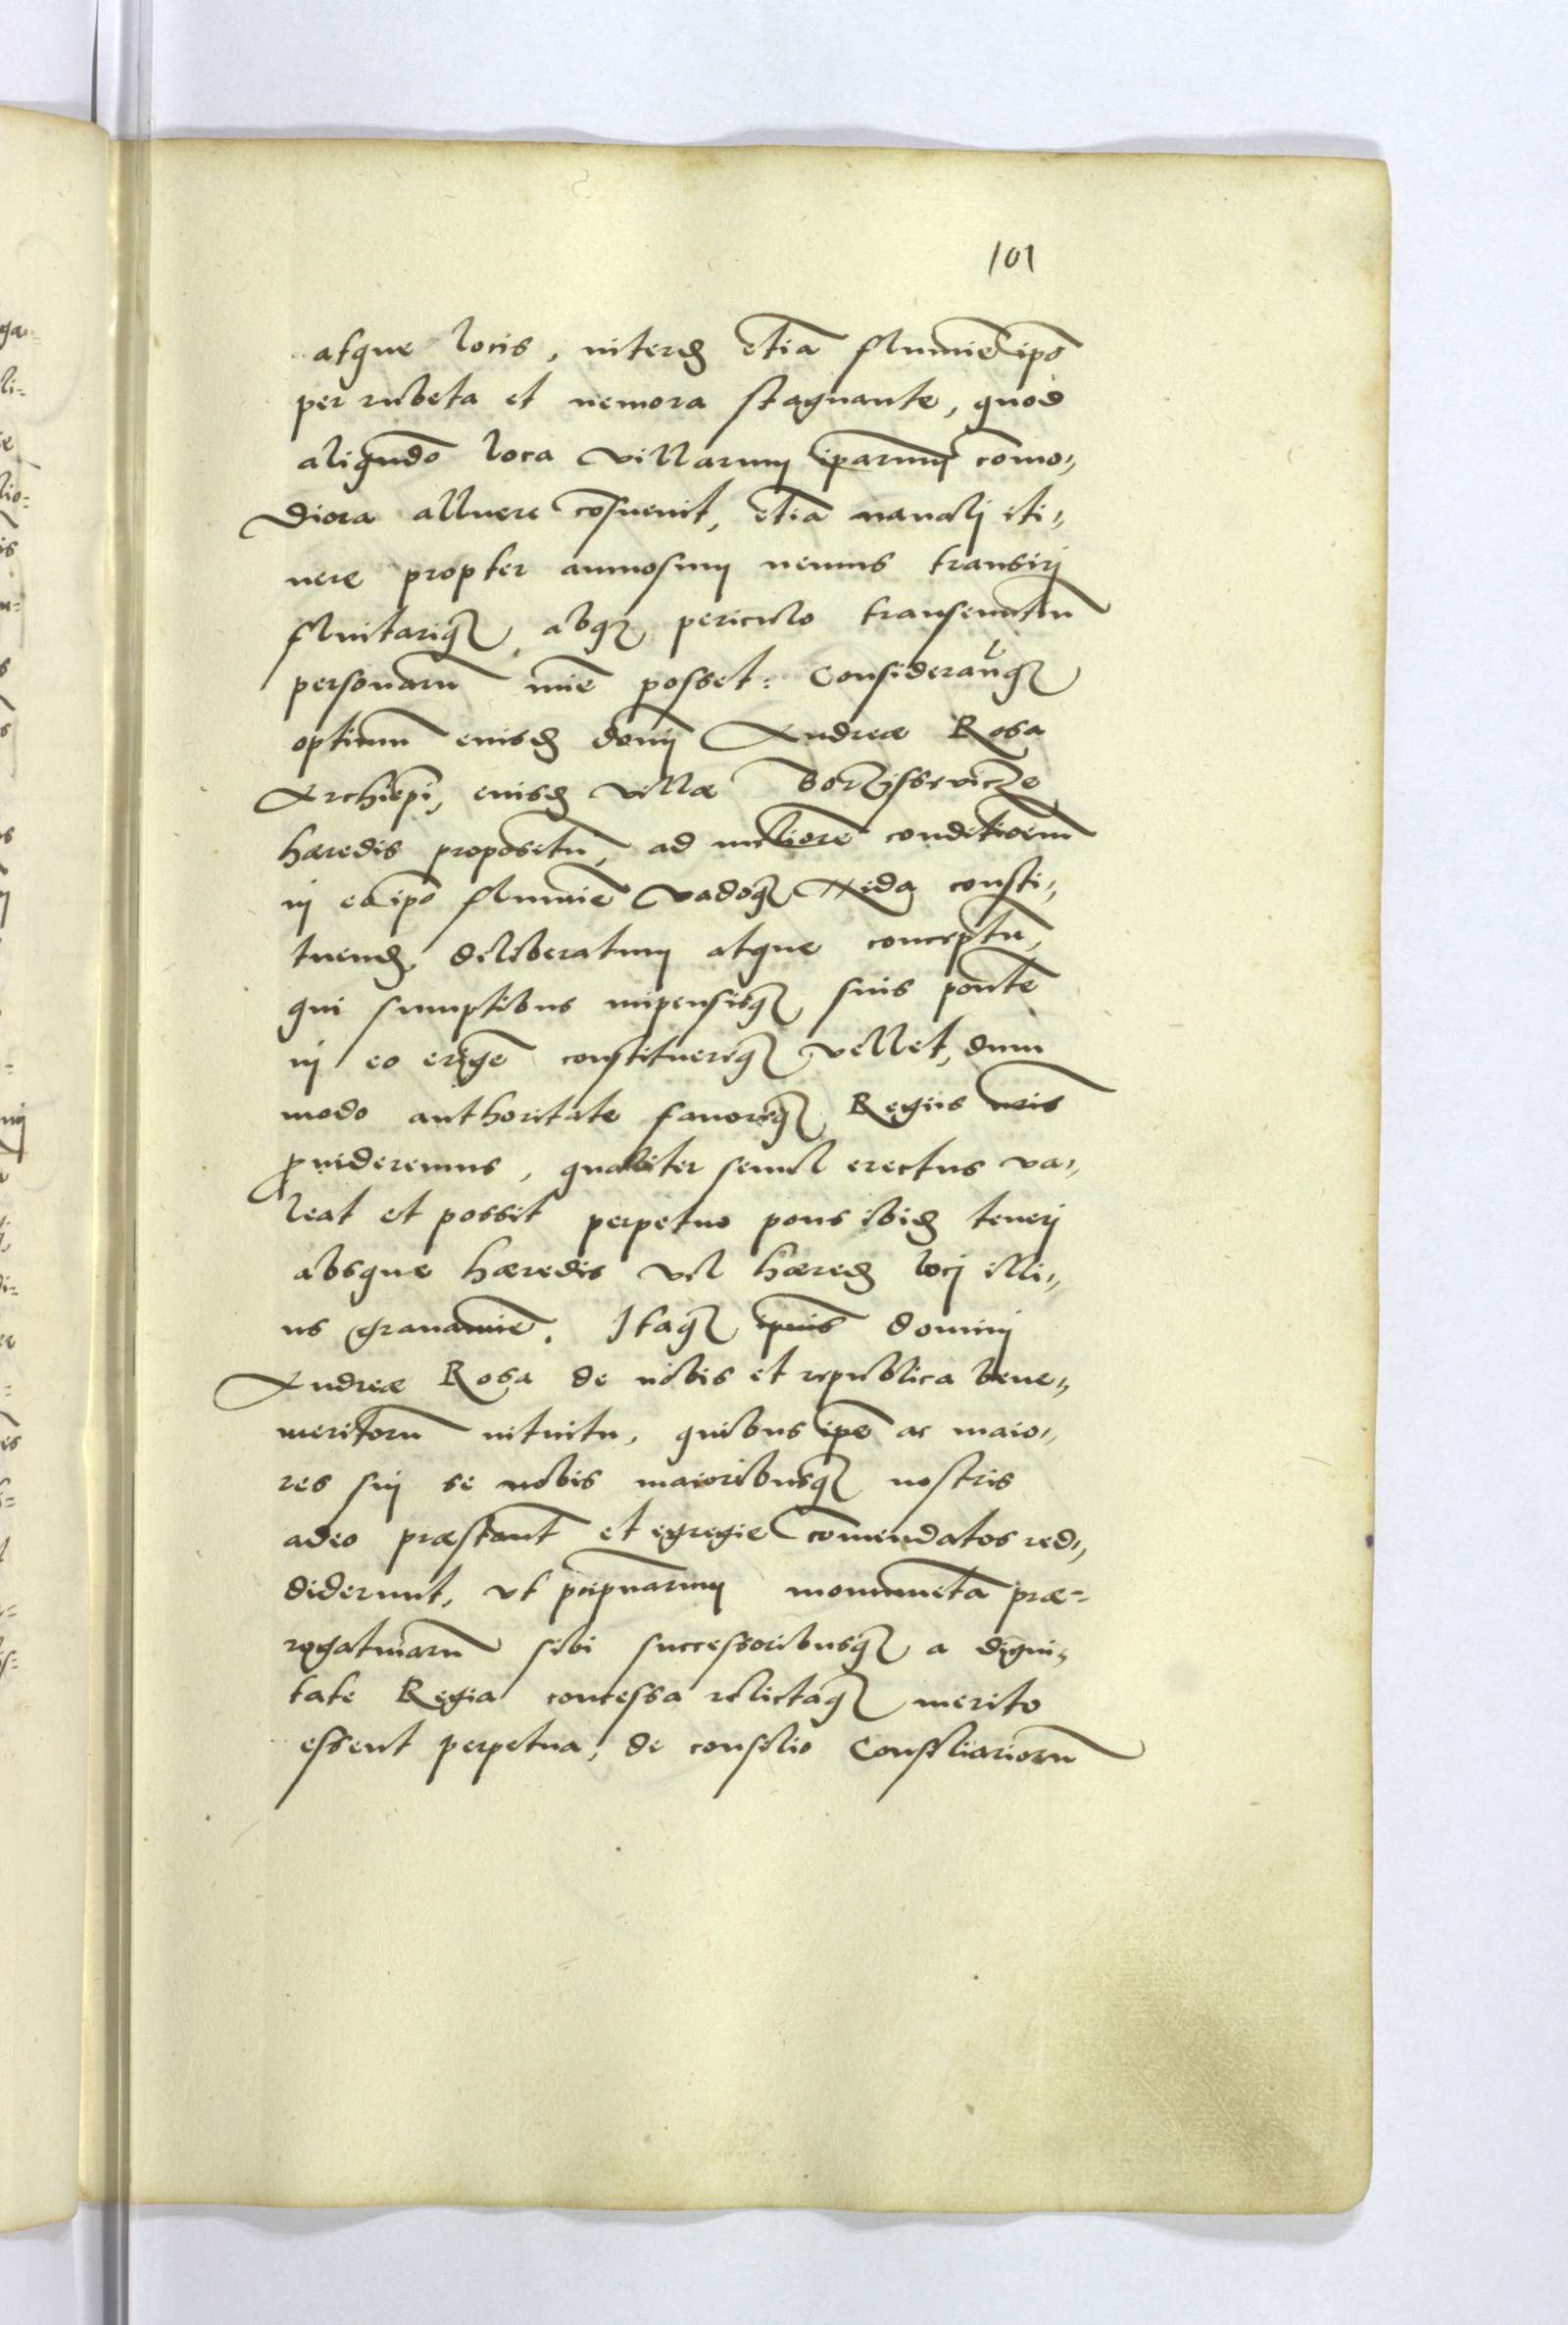 101
atque locis, interd etiã flumiẽ ipõ
per rubeta et nemora stagnante, quod
aliqñdo loca villarum ip̃arum com̃o„
diora alluere cõsuevit, etiã navali iti„
nere propter annosum nemus transiri
fluitariq₃, absq₃ periculo transeuntiũ
personarũ miñe posset: Considerañtq₃
optimũ eiusd dõnj Andreæ Rosa
Archiep̃i, eiusd villæ Borzisservicze
hæredis propositũ, ad meliorẽ conditioẽm
in eo ip̃o flumiẽ vadoq₃ Nida consti„
tuend, deliberatum atque conceptũ,
qui sumptibus impensisq₃ suis pontẽ
in eo erigẽ constituereq₃ vellet, dum
modo authoritate favoreq₃ Regiis nr̃is
p̱videremus, qualiter semel erectus va„
leat et possit perpetuo pons ibid teneri
absque hæredis vel hæred loci illi„
us gravamiẽ. Itaq₃ ip̃ius domini
Andreæ Rosa de nobis et republica bene„
meritorũ intuitu, quibus ip̃e ac maio„
res sui se nobis maioribusq₃ nostris
adeo præstant̃ et egregie com̃endatos red„
diderunt, ut p̃cipuarum monumẽta præ=
rogativarũ sibi successoribusq₃ a digni„
tate Regia concessa relictaq₃ merito
essent perpetua, de consilio Consiliariorũ